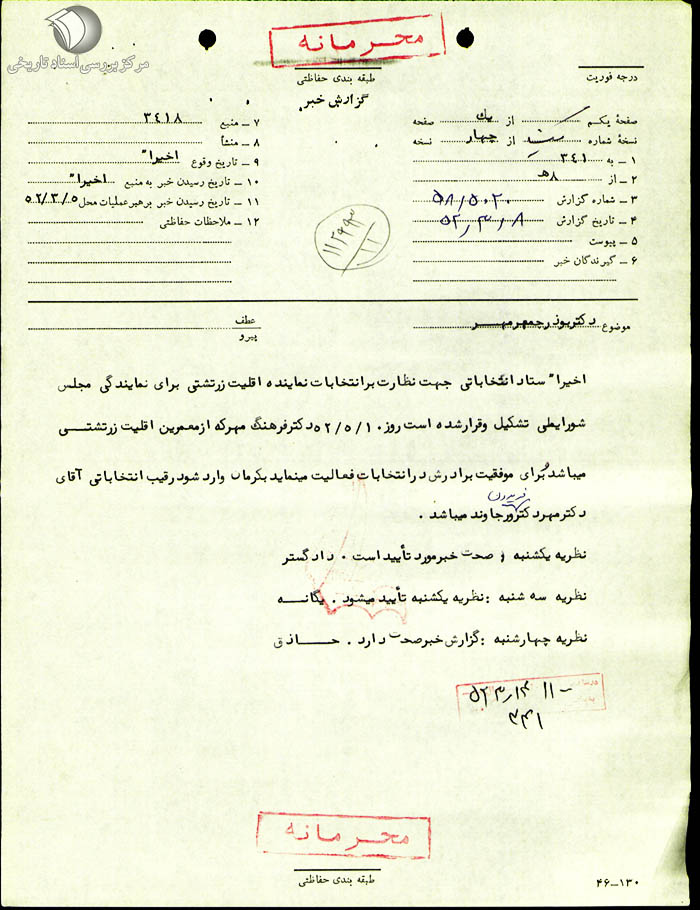 مرکز بررسی اسناد تاریخی
محرمانه
طبقه بندی حفاظتی
درجه فوریت
گزارش خبر
صفحهٔ یکم از یک صفحه
نسخهٔ شماره از چهار نسخه
۱ – به ۳۴۱
۲ – از ۸ﻫ
۳ – شماره گزارش ۵۸/۵۰۲۰
۴ – تاریخ گزارش ۵۲/۳/۸
۵ – پیوست
۶ – گیرندگان خبر
۷ – منبع ۳۴۱۸
۸ – منشأ
۹ – تاریخ وقوع اخیرا"
۱۰ – تاریخ رسیدن خبر به منبع اخیرا"
۱۱ – تاریخ رسیدن خبر برهبر عملیات محل ۵۲/۳/۵
۱۲ – ملاحظات حفاظتی
موضوع دکتر بوذرجمهر مهر
عطف
پیرو
اخیرا" ستاد انتخاباتی جهت نظارت بر انتخابات نماینده اقلیت زرتشتی برای نمایندگی مجلس
شورایملی تشکیل وقرار شده است روز ۵۲/۵/۱۰ دکتر فرهنگ مهر که از معمرین اقلیت زرتشتی
میباشد برای موفقیت برادرش در انتخابات فعالیت مینماید بکرمان وارد شود رقیب انتخاباتی آقای
دکتر مهر دکتر فریدون ورجاوند میباشد .
نظریه یکشنبه : صحت خبر مورد تأیید است . دادگستر
نظریه سه شنبه : نظریه یکشنبه تأیید میشود . یگانه
نظریه چهارشنبه : گزارش خبر صحت دارد . حاذق
۳۴۱
محرمانه
طبقه بندی حفاظتی
۴۶–۱۳۰